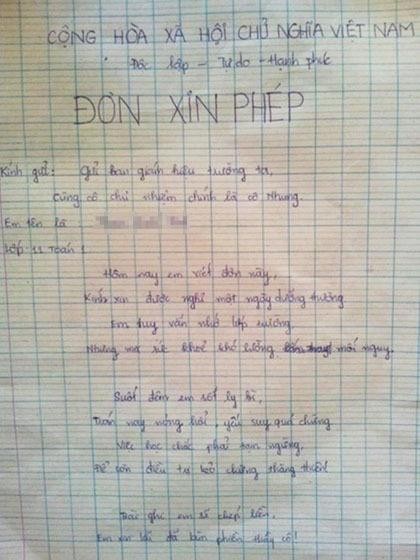 CỘNG HÒA XÃ HỘI CHỦ NGHĨA VIỆT NAM
Độc lập - Tự do - Hạnh phúc
ĐƠN XIN PHÉP
Kính gửi: Gửi ban giám hiệu trường ta,
Cùng cô chủ nhiệm chính là cô Nhung.
Em tên là
Lớp: 11 Toán 1
Hôm nay em viết đơn này,
Kính xin được nghỉ một ngày dưỡng thương
Em tuy vẫn nhớ lớp trường,
Nhưng mà sức khoẻ khó lường mối nguy.
Suốt đêm em sốt ly bì,
Trán nay nóng hổi, yếu suy quá chừng
Việc học chắc phải tạm ngừng,
Để còn điều trị kẻo chừng thăng thiên!
Bài ghi em sẽ chép liền,
Em xin lỗi đã làm phiền thầy cô!